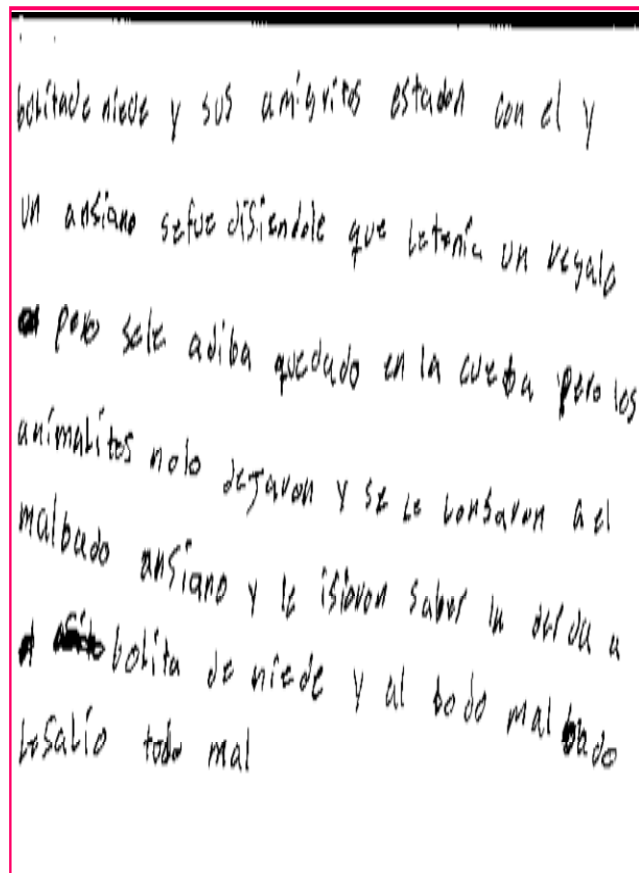 bolitade niede y sus amigritos estadon con el y
un ansiano sefue disiendole que letenia un regalo
pero sele adiba quedado en la cueba pero los
animalitos nolo degaron y se le lonsaron a el
malbado ansiano y le isieron saber la derda a
bolita de niede y al bodo malbado
lesalio todo mal